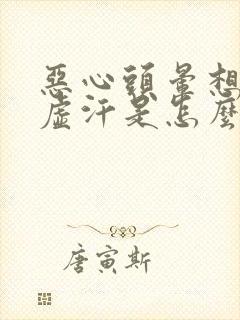 惡心頭暈想
虛汗是怎麼
唐寅斯